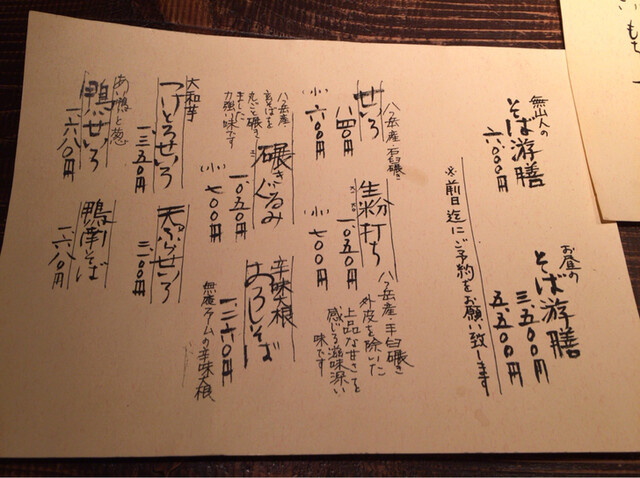 無山人の
そば游膳
六.000円
お昼の
そば游膳
三.五00円
五.五00円
※前日迄にご予約をお願い致します
八ヶ岳産・石臼碾き
せいろ
八四0円
(小)六00円
生粉打ち
一.0五0円
(小)七00円
八ヶ岳産・手臼碾き
外皮を除いた
上品な甘さを
感じる滋味深い
味です
八ヶ岳産・
玄そばを
丸ごと碾き
ました
力強い味です
碾きぐるみ
一.0五0円
(小)七00円
辛味大根
おろしそば
一.二六0円
無庵ファームの辛味大根
大和芋
つけとろせいろ
一.三五0円
天ぷらせいろ
三.一00円
あい鴨と葱
鴨せいろ
一.六八0円
鴨南そば
一.六八0円